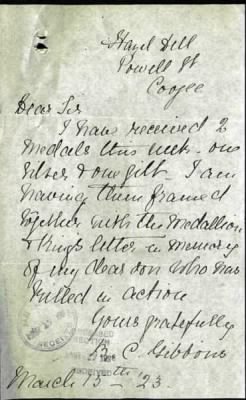 Hazel Dell
Powell St
Coogee
Dear Sir
I have received 2
medals this week - one
silver & one gilt. I am
having them framed
together with the medallion
& King's letter in memory
of my dear son who was
killed in action
Yours gratefully
C. Gibbons
March 15th - 23.